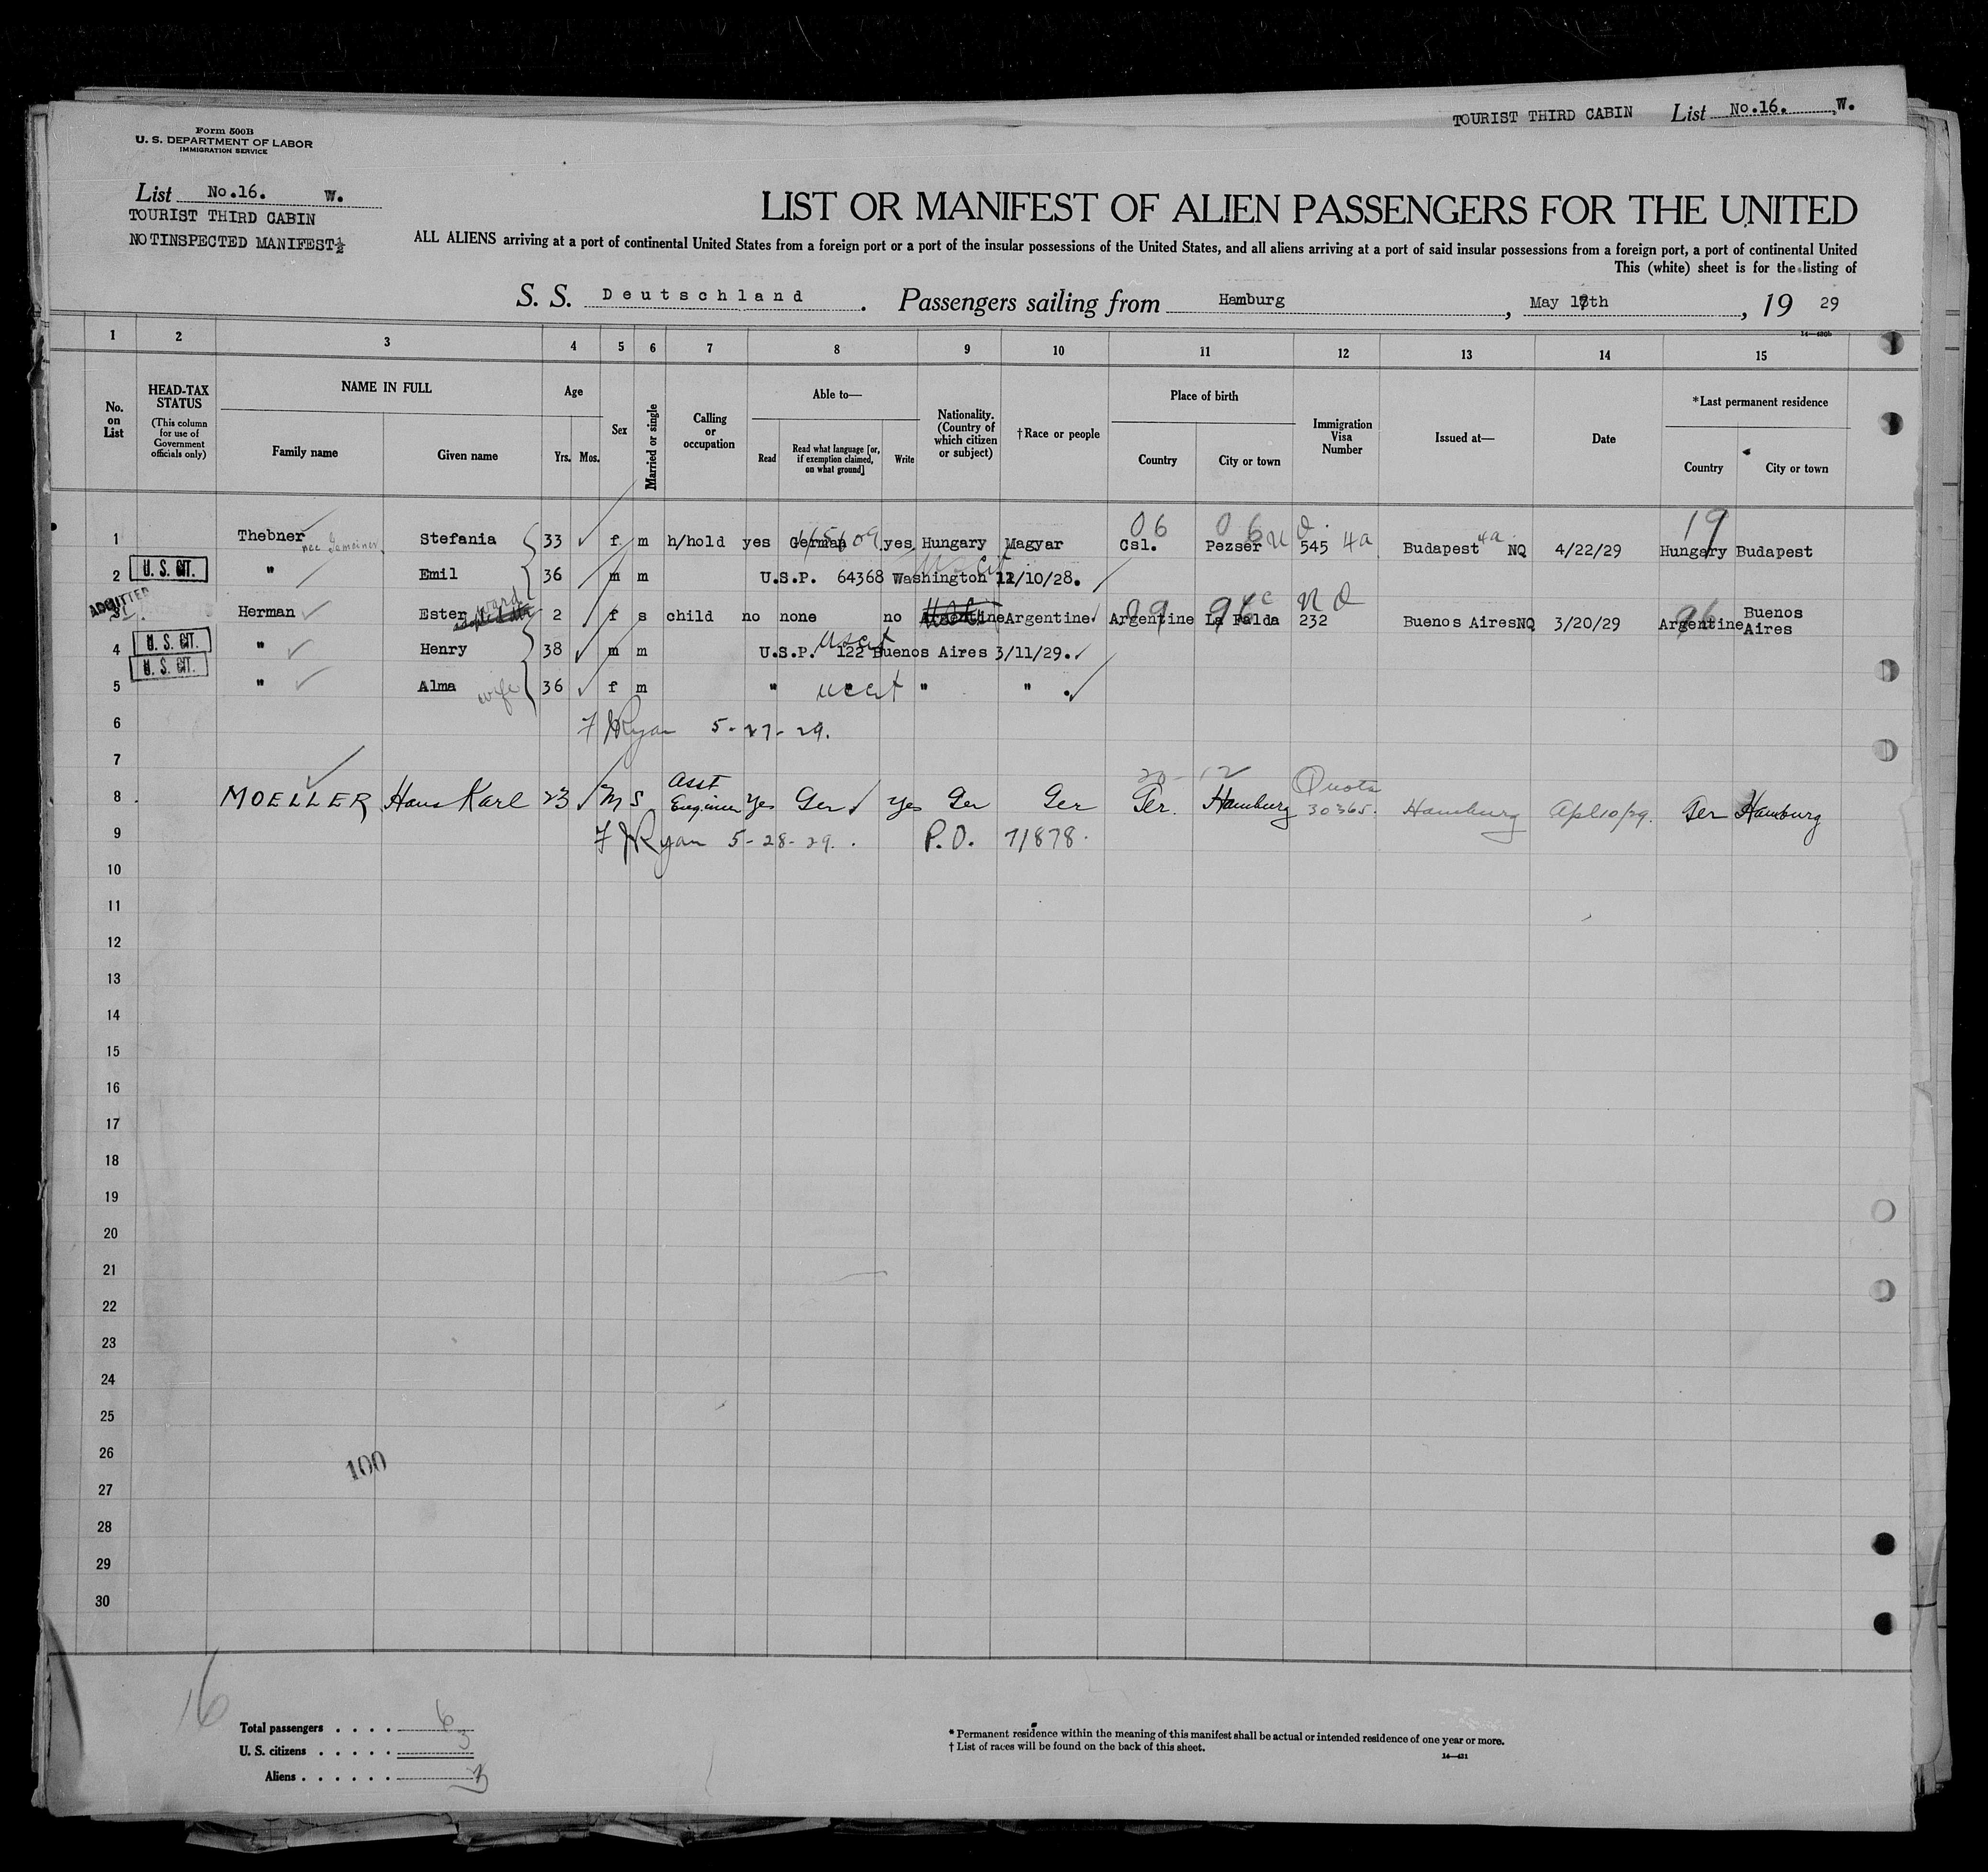 TOURIST THIRD CABIN List No.16. W.
Form 500B
U. S. DEPARTMENT OF LABOR
IMMIGRATION SERVICE
List No.16. W.
TOURIST THIRD CABIN
NOTINSPECTED MANIFEST½
LIST OR MANIFEST OF ALIEN PASSENGERS FOR THE UNITED
ALL ALIENS arriving at a port of continental United States from a foreign port or a port of the insular possessions of the United States, and all aliens arriving at a port of said insular possessions from a foreign port, a port of continental United
This (white) sheet is for the listing of
S. S. Deutschland. Passengers sailing from Hamburg, May 18th, 19 29
14—430b
1 2 3 4 5 6 7 8 9 10 11 12 13 14 15
No. on List
HEAD-TAX STATUS
(This column for use of Government officials only)
NAME IN FULL
Family name Given name
Age
Yrs. Mos.
Sex
Married or single
Calling or occupation
Able to—
Read Read what language [or, if exemption claimed, on what ground] Write
Nationality. (Country of which citizen or subject)
†Race or people
Place of birth
Country City or town
Immigration Visa Number
Issued at—
Date
*Last permanent residence
Country City or town
06 06 19
1 Thebner Stefania 33 f m h/hold yes German yes Hungary Magyar Csl. Pezser 545 4a Budapest 4a NQ 4/22/29 Hungary Budapest
2 U. S. CIT. " Emil 36 m m U.S.P. 64368 Washington 12/10/28.
ADMITTED
ward
3 Herman Ester 2 f s child no none no Argentine Argentine Argentine La Falda 232 Buenos Aires NQ 3/20/29 Argentine Buenos Aires
4 U. S. CIT. " Henry 38 m m U.S.P. 122 Buenos Aires 3/11/29.
US Cit
U. S. CIT.
5 " Alma wife 36 f m " " " .
6 F J Ryan 5-27-29.
7
20-12 Quota
8 MOELLER Hans Karl 23 M S Asst Engineer Yes Ger Yes Ger Ger Ger. Hamburg 30365. Hamburg Apl 10/29. Ger Hamburg
9 F J Ryan 5-28-29. P.O. 71878.
10
11
12
13
14
15
16
17
18
19
20
21
22
23
24
25
26
100
27
28
29
30
16
Total passengers . . . . 6
U. S. citizens . . . . . 3
Aliens . . . . . . 3
* Permanent residence within the meaning of this manifest shall be actual or intended residence of one year or more.
† List of races will be found on the back of this sheet.
14—421